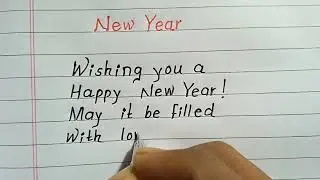 New Year
Wishing you a
Happy New Year!
May it be filled
With lo